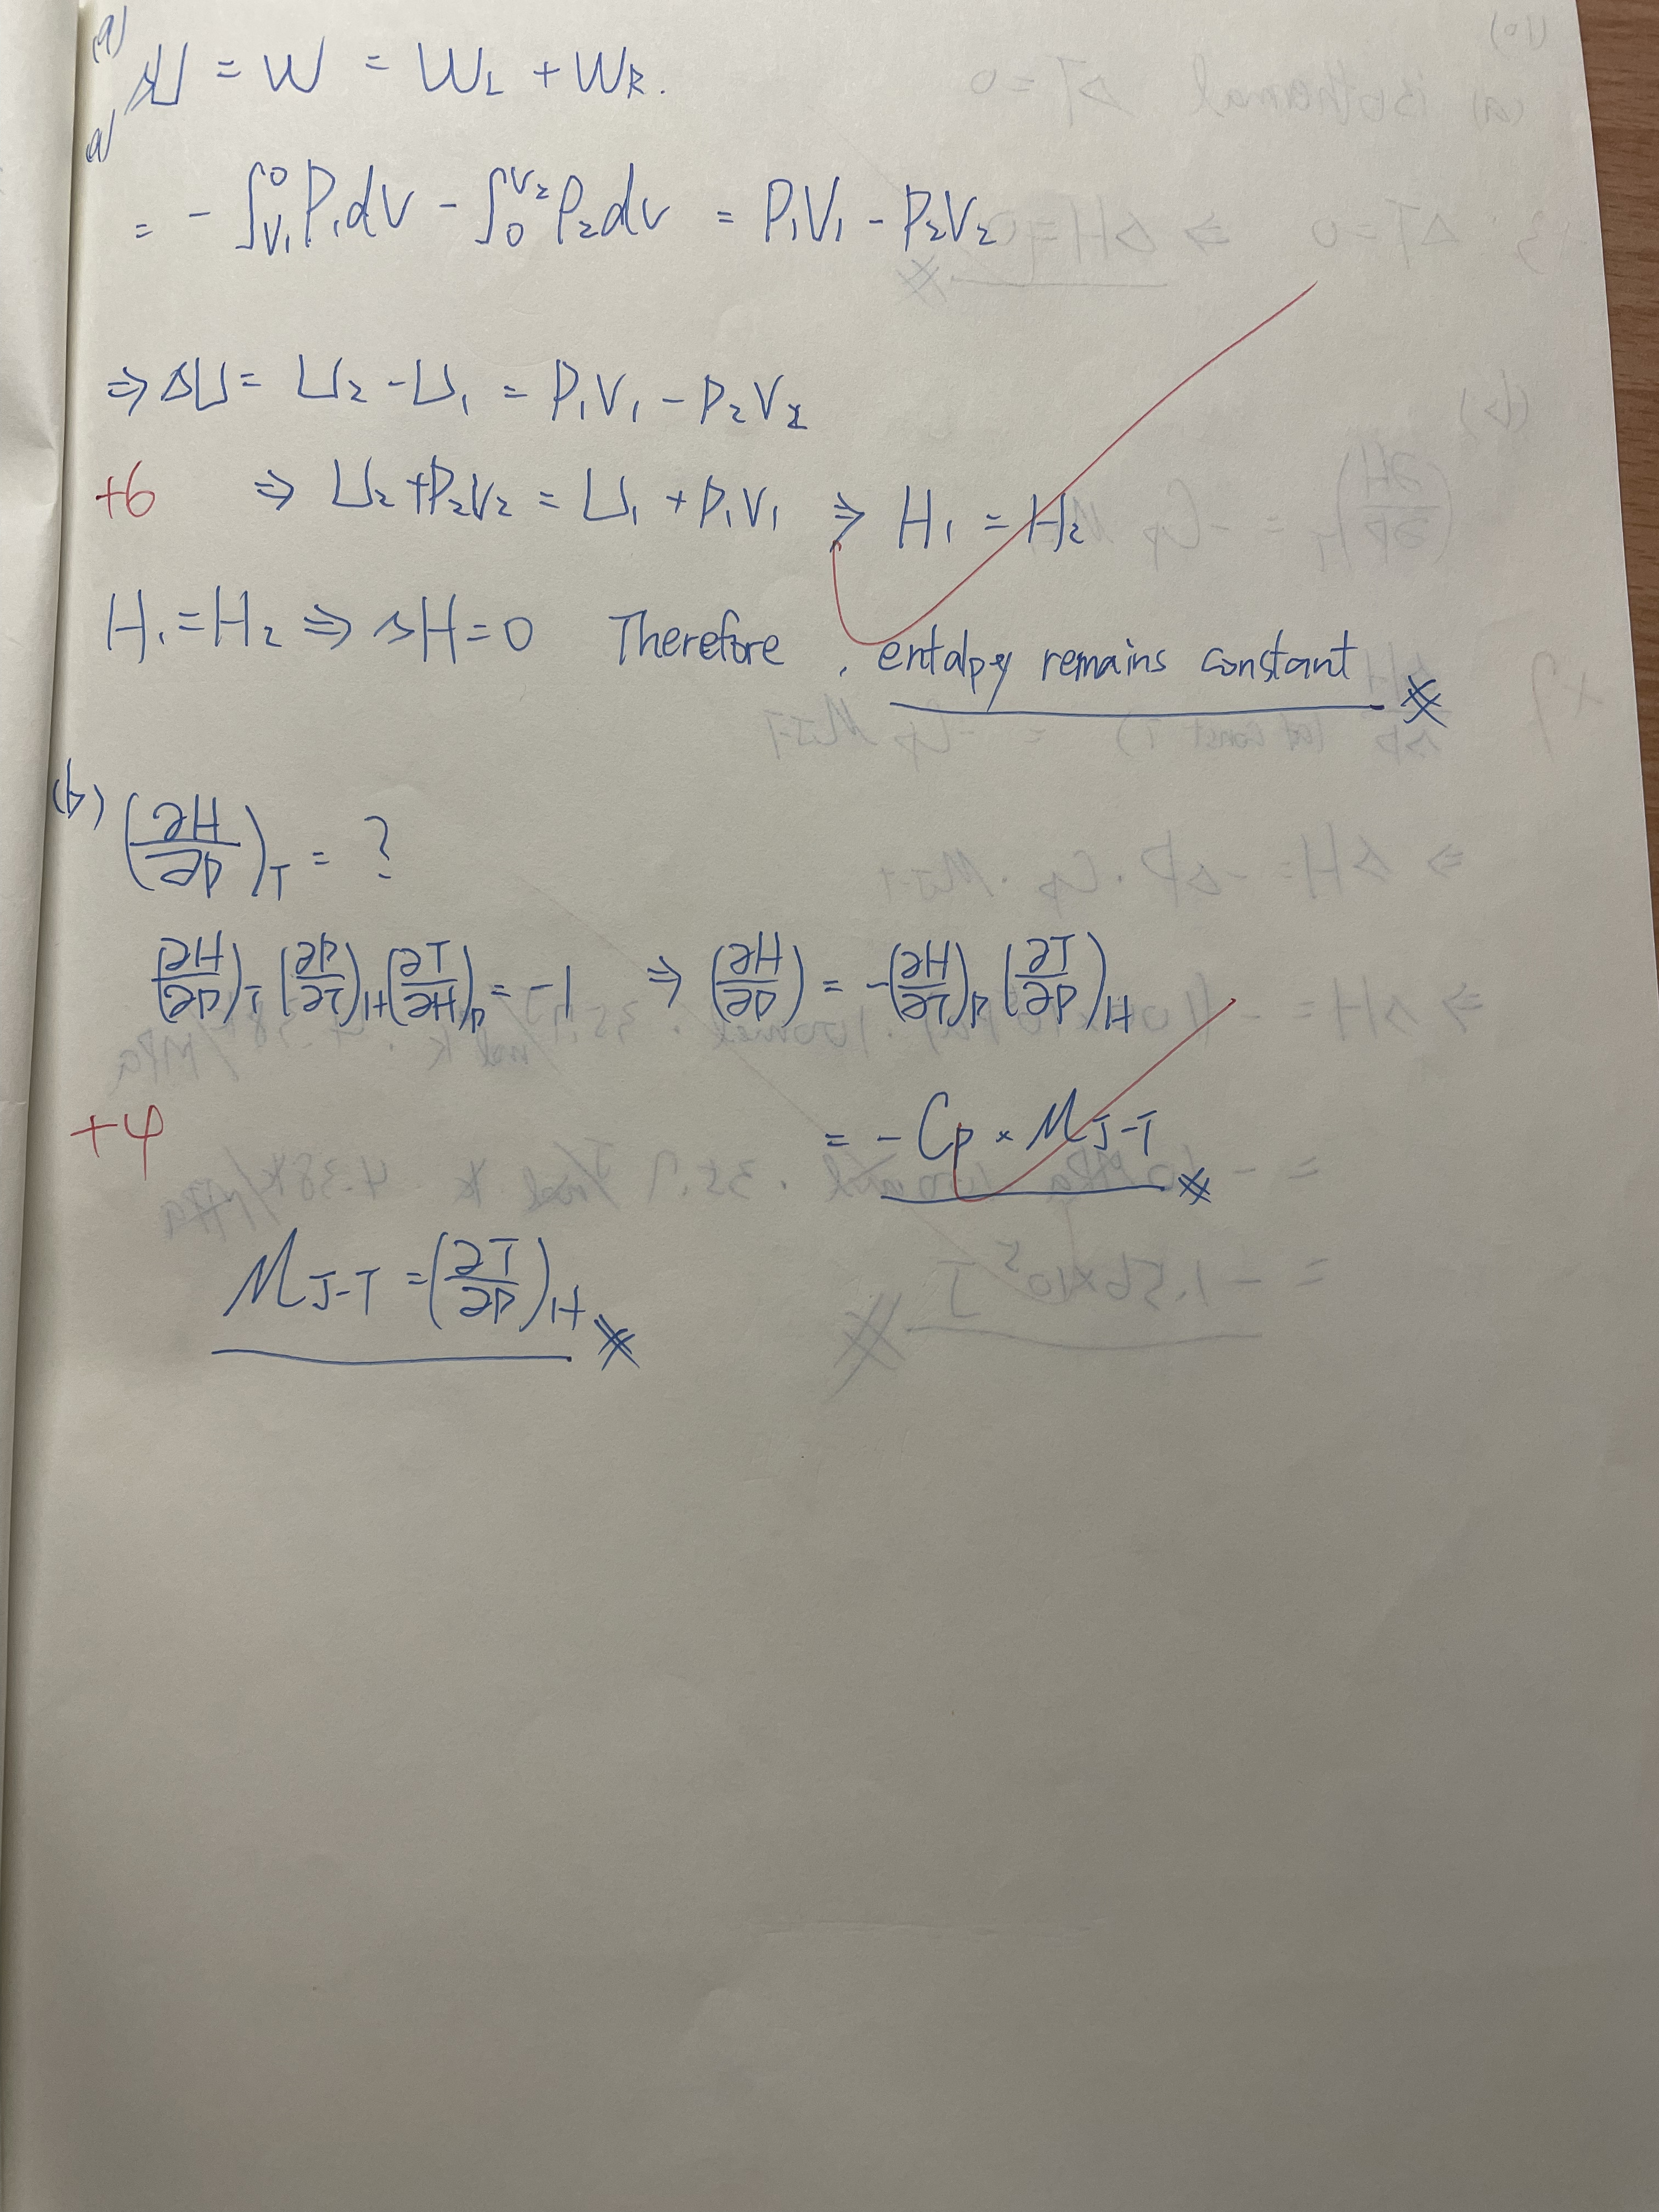 (9)
ΔU = W = W_L + W_R.
a)
= - ∫_{V_1}^{0} P_1 dV - ∫_{0}^{V_2} P_2 dV = P_1V_1 - P_2V_2
⇒ ΔU = U_2 - U_1 = P_1V_1 - P_2V_2
+6 ⇒ U_2 + P_2V_2 = U_1 + P_1V_1 ⇒ H_1 = H_2
H_1 = H_2 ⇒ ΔH = 0 Therefore, entalpy remains constant
(b) (∂H/∂P)_T = ?
(∂H/∂P)_T (∂P/∂T)_H (∂T/∂H)_P = -1 ⇒ (∂H/∂P) = -(∂H/∂T)_P (∂T/∂P)_H
+4 = - C_P × μ_{J-T}
μ_{J-T} = (∂T/∂P)_H